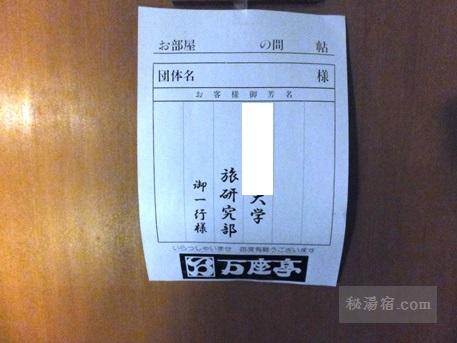 お部屋 の間 帖
団体名 様
お客様御芳名
大学
旅研究部
御一行様
いらっしゃいませ 毎度有難うございます
万座亭
秘湯宿.com